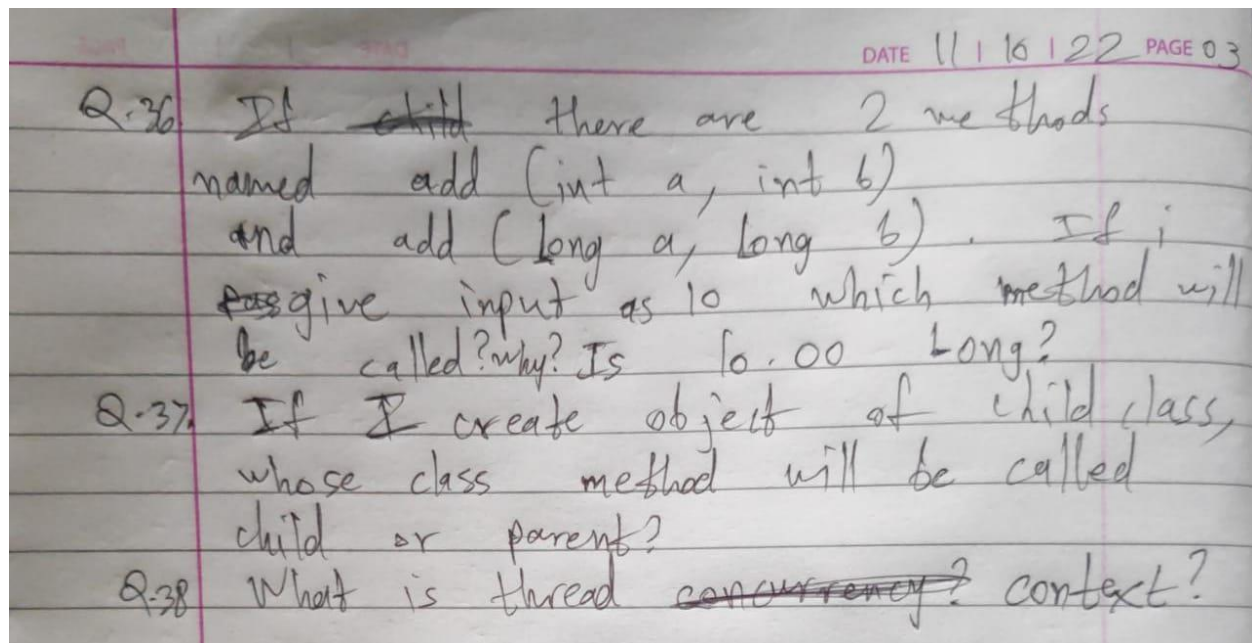 DATE 11 | 10 | 22 PAGE 03
Q.36 If child there are 2 methods
named add (int a, int b)
and add (Long a, Long b). If i
pass give input as 10 which method will
be called? why? Is 10.00 Long?
Q.37 If I create object of child class,
whose class method will be called
child or parent?
Q.38 What is thread concurrency? context?